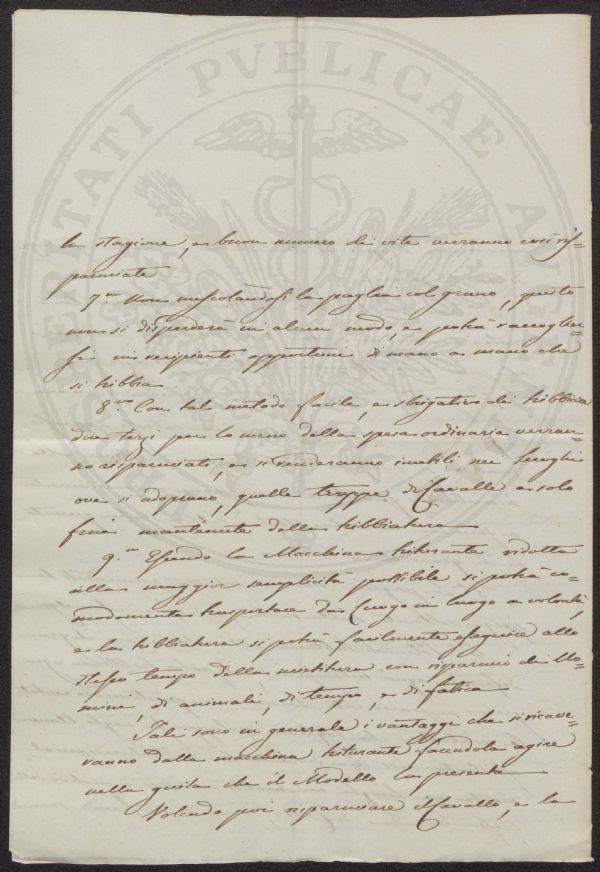 la stagione, e buon numero di vite verranno così ris=
parmiate
7.mo Non mescolandosi la paglia col grano, questo
non si disperderà in alcun modo, e potrà raccoglier=
si in recipienti opportuni di mano a mano che
si tribbia
8.vo Con tal metodo facile, e sbrigativo di tribbiare
due terzi per lo meno della spesa ordinaria verran=
no risparmiati, e si renderanno inutili, nei luoghi
ove si adoprano, quelle truppe di Cavalle a solo
fine mantenute della tribbiatura
9.no Essendo la Macchina triturante ridotta
alla maggior semplicità possibile si potrà co=
modamente trasportare da luogo in luogo a volontà,
e la tribbiatura si potrà facilmente eseguire allo
stesso tempo della mietitura con risparmio di Uo=
mini, di animali, di tempo, e di fatica
Tali sono in generale i vantaggi che si ricave=
ranno dalla macchina triturante facendola agire
nella guisa che il Modello rappresenta
Volendo poi risparmiare il Cavallo, e la
PVBLICAE